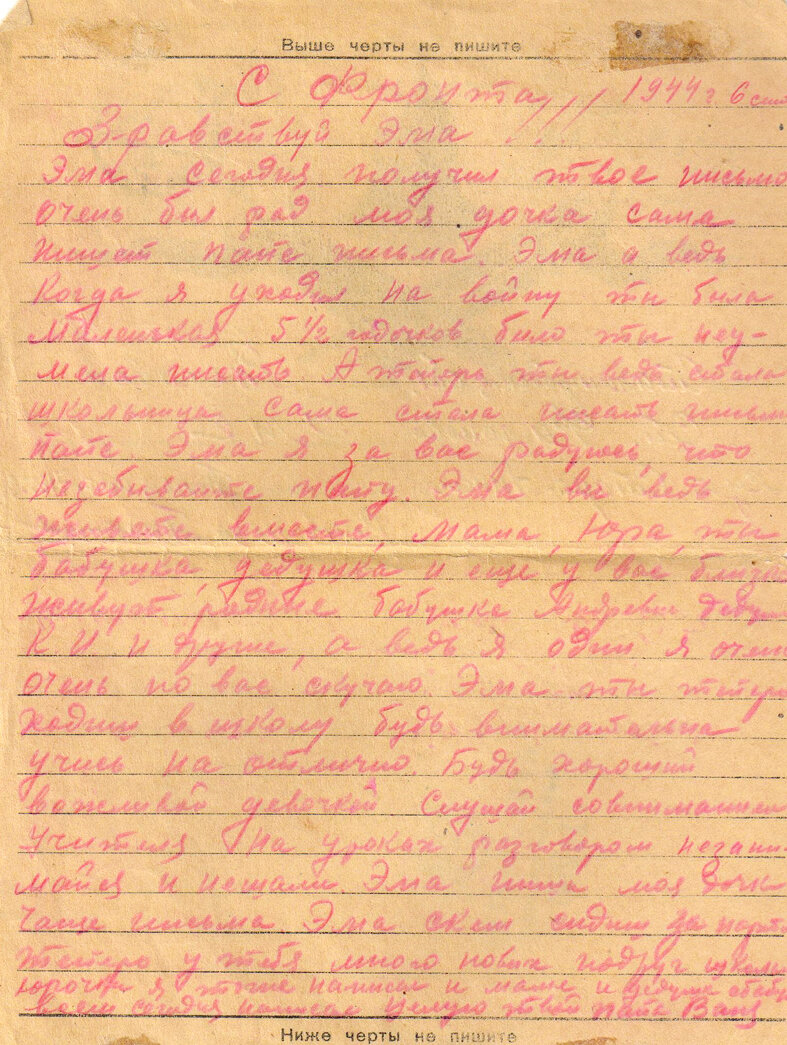 Выше черты не пишите
С Фронта 1944 г. 6 сен
Здравствуй Эма !!!
Эма сегодня получил твое письмо
очень был рад моя дочка сама
пишет папе письма. Эма а ведь
когда я уходил на войну ты была
маленькая 5 ½ годочков было ты неу-
мела писать А теперь ты ведь стала
школьница сама стала писать письма
папе. Эма я за вас радуюсь, что
незебываите папу. Эма вы ведь
живете вместе, мама, Юра, ты
бабушка, дедушка и еще у вас близко
живут родные бабушка Андревна дедуш
К И и другие, а ведь я один я очен
очень по вас скучаю. Эма ты теперь
ходиш в школу будь внимательна
учись на отлично. Будь хорошей
вежеливой девочкей Слушай совниманием
учителя На уроках разговором незани-
майся и нешали. Эма пиши моя дочк
чаще письма. Эма скем сидиш за парто
теперь у тебя много новых подруг
Юрочке я тоже написал и маме и дедушке
всем сегодня написал целую твой папа Ваня
Ниже черты не пишите